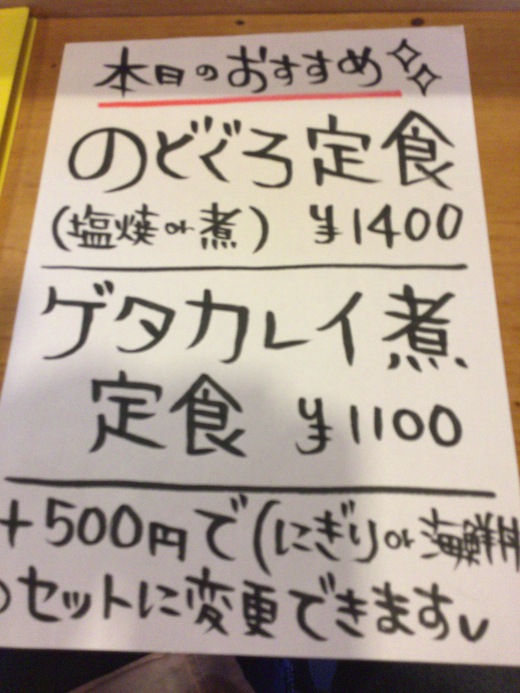 本日のおすすめ
のどぐろ定食
(塩焼or煮) ¥1400
ゲタカレイ煮
定食 ¥1100
+500円で(にぎりor海鮮丼
のセットに変更できます